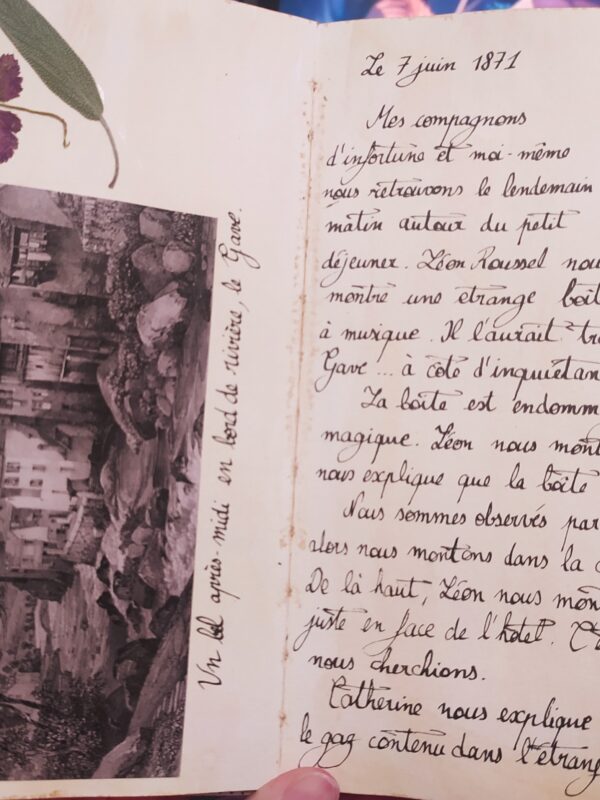 Un bel après-midi en bord de rivière, le Gave.
Le 7 juin 1871
Mes compagnons
d'infortune et moi-même
nous retrouvons le lendemain
matin autour du petit
déjeuner. Léon Roussel nou
montre une étrange boît
à musique. Il l'aurait tr
Gave... à côté d'inquiétan
La boîte est endomm
magique. Léon nous mont
nous explique que la boîte
Nous sommes observés par
alors nous montons dans la
De là haut, Léon nous mon
juste en face de l'hôtel. C'
nous cherchions.
Catherine nous explique
le gaz contenu dans l'étrang